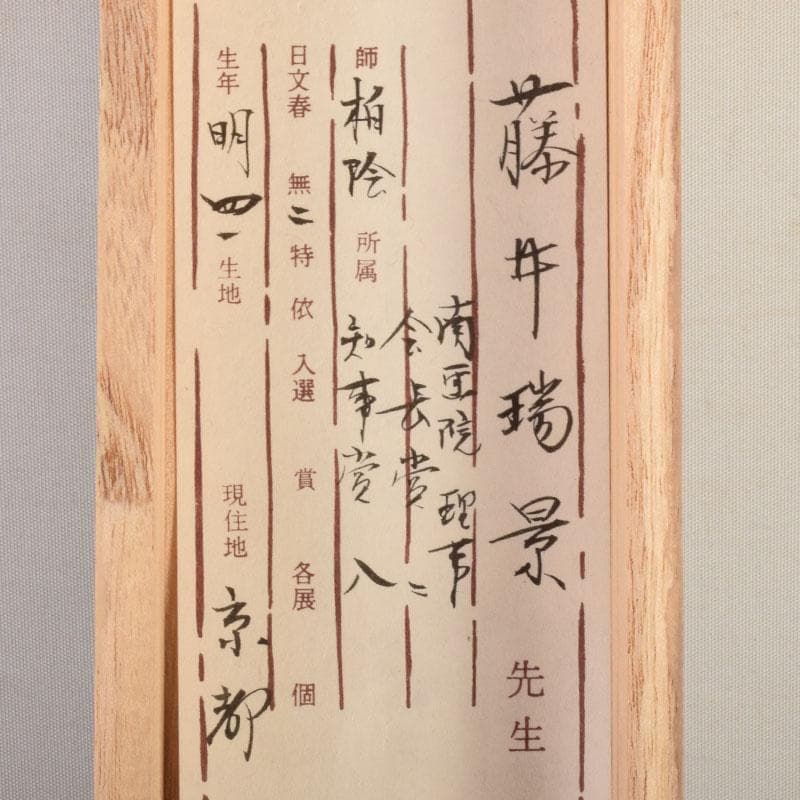 藤井瑞景先生
南画院 理事
会長賞 二
師 柏陰 所属 知事賞 八
日文春 無二特依入選 賞 各展 個
生年 明四一 生地 現住地 京都